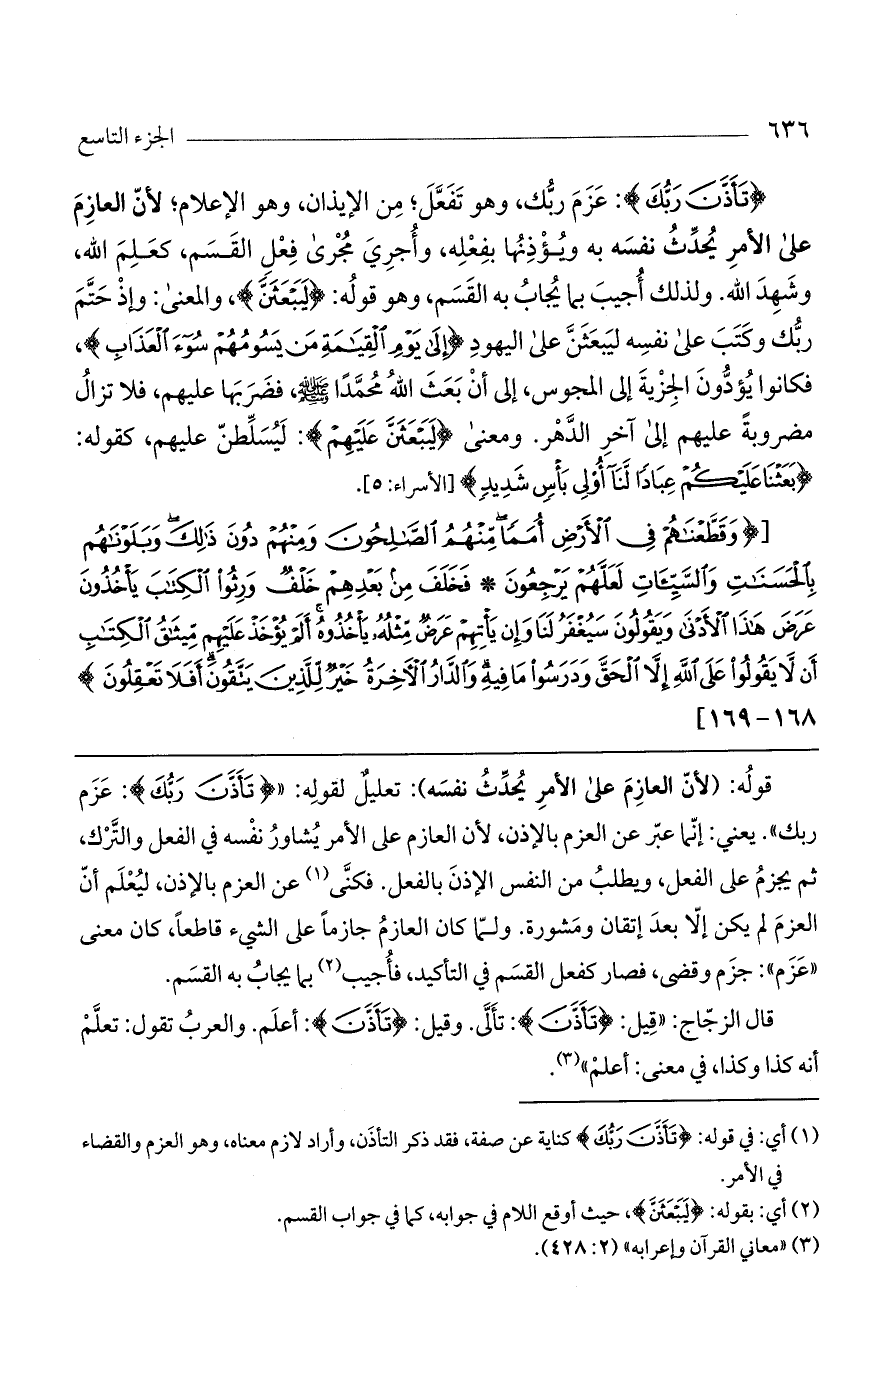 ٦٣٦ الجزء التاسع
﴿تَأَذَّنَ رَبُّكَ﴾: عَزَمَ ربُّك، وهو تَفَعَّلَ؛ مِن الإيذان، وهو الإعلام؛ لأنّ العازِمَ
علىٰ الأمرِ يُحدِّثُ نفسَه به ويُؤْذِنُها بفِعْلِه، وأُجرِيَ مُجْرىٰ فِعْلِ القَسَم، كعَلِمَ الله،
وشَهِدَ الله. ولذلك أُجيبَ بما يُجابُ به القَسَم، وهو قولُه: ﴿لَيَبْعَثَنَّ﴾، والمعنىٰ: وإذْ حَتَّمَ
ربُّك وكَتَبَ علىٰ نفسِه ليَبعَثَنَّ علىٰ اليهودِ ﴿إِلَىٰ يَوْمِ ٱلْقِيَٰمَةِ مَن يَسُومُهُمْ سُوٓءَ ٱلْعَذَابِ﴾،
فكانوا يُؤدُّونَ الجِزْيةَ إلى المجوس، إلى أنْ بَعَثَ اللهُ مُحمَّدًا ﷺ، فضَرَبَها عليهم، فلا تزالُ
مضروبةً عليهم إلىٰ آخرِ الدَّهْر. ومعنىٰ ﴿لَيَبْعَثَنَّ عَلَيْهِمْ﴾: لَيُسَلِّطنّ عليهم، كقوله:
﴿بَعَثْنَا عَلَيْكُمْ عِبَادًا لَّنَآ أُو۟لِى بَأْسٍ شَدِيدٍ﴾ [الأسراء: ٥].
[﴿وَقَطَّعْنَٰهُمْ فِى ٱلْأَرْضِ أُمَمًا ۖ مِّنْهُمُ ٱلصَّٰلِحُونَ وَمِنْهُمْ دُونَ ذَٰلِكَ ۖ وَبَلَوْنَٰهُم
بِٱلْحَسَنَٰتِ وَٱلسَّيِّـَٔاتِ لَعَلَّهُمْ يَرْجِعُونَ * فَخَلَفَ مِنۢ بَعْدِهِمْ خَلْفٌ وَرِثُوا۟ ٱلْكِتَٰبَ يَأْخُذُونَ
عَرَضَ هَٰذَا ٱلْأَدْنَىٰ وَيَقُولُونَ سَيُغْفَرُ لَنَا وَإِن يَأْتِهِمْ عَرَضٌ مِّثْلُهُۥ يَأْخُذُوهُ ۚ أَلَمْ يُؤْخَذْ عَلَيْهِم مِّيثَٰقُ ٱلْكِتَٰبِ
أَن لَّا يَقُولُوا۟ عَلَى ٱللَّهِ إِلَّا ٱلْحَقَّ وَدَرَسُوا۟ مَا فِيهِ ۗ وَٱلدَّارُ ٱلْـَٔاخِرَةُ خَيْرٌ لِّلَّذِينَ يَتَّقُونَ ۗ أَفَلَا تَعْقِلُونَ﴾
١٦٨-١٦٩]
قولُه: (لأنّ العازِمَ علىٰ الأمرِ يُحدِّثُ نفسَه): تعليلٌ لقولِه: «﴿تَأَذَّنَ رَبُّكَ﴾: عَزَم
ربك». يعني: إنَّما عبّر عن العزم بالإذن، لأن العازم على الأمر يُشاورُ نفْسه في الفعل والتَّرْك،
ثم يجزمُ على الفعل، ويطلبُ من النفس الإذنَ بالفعل. فكنَّى(١) عن العزم بالإذن، ليُعْلَم أنّ
العزمَ لم يكن إلّا بعدَ إتقان ومَشورة. ولـمّا كان العازمُ جازماً على الشيء قاطعاً، كان معنى
«عَزَم»: جزَم وقضى، فصار كفعل القسَم في التأكيد، فأُجيب(٢) بما يجابُ به القسَم.
قال الزجّاج: «قِيل: ﴿تَأَذَّنَ﴾: تألَّى. وقيل: ﴿تَأَذَّنَ﴾: أعلَم. والعربُ تقول: تعلَّمْ
أنه كذا وكذا، في معنى: أعلمْ»(٣).
(١) أي: في قوله: ﴿تَأَذَّنَ رَبُّكَ﴾ كناية عن صفة، فقد ذكر التأذَن، وأراد لازم معناه، وهو العزم والقضاء
في الأمر.
(٢) أي: بقوله: ﴿لَيَبْعَثَنَّ﴾، حيث أوقع اللام في جوابه، كما في جواب القسم.
(٣) «معاني القرآن وإعرابه» (٢: ٤٢٨).